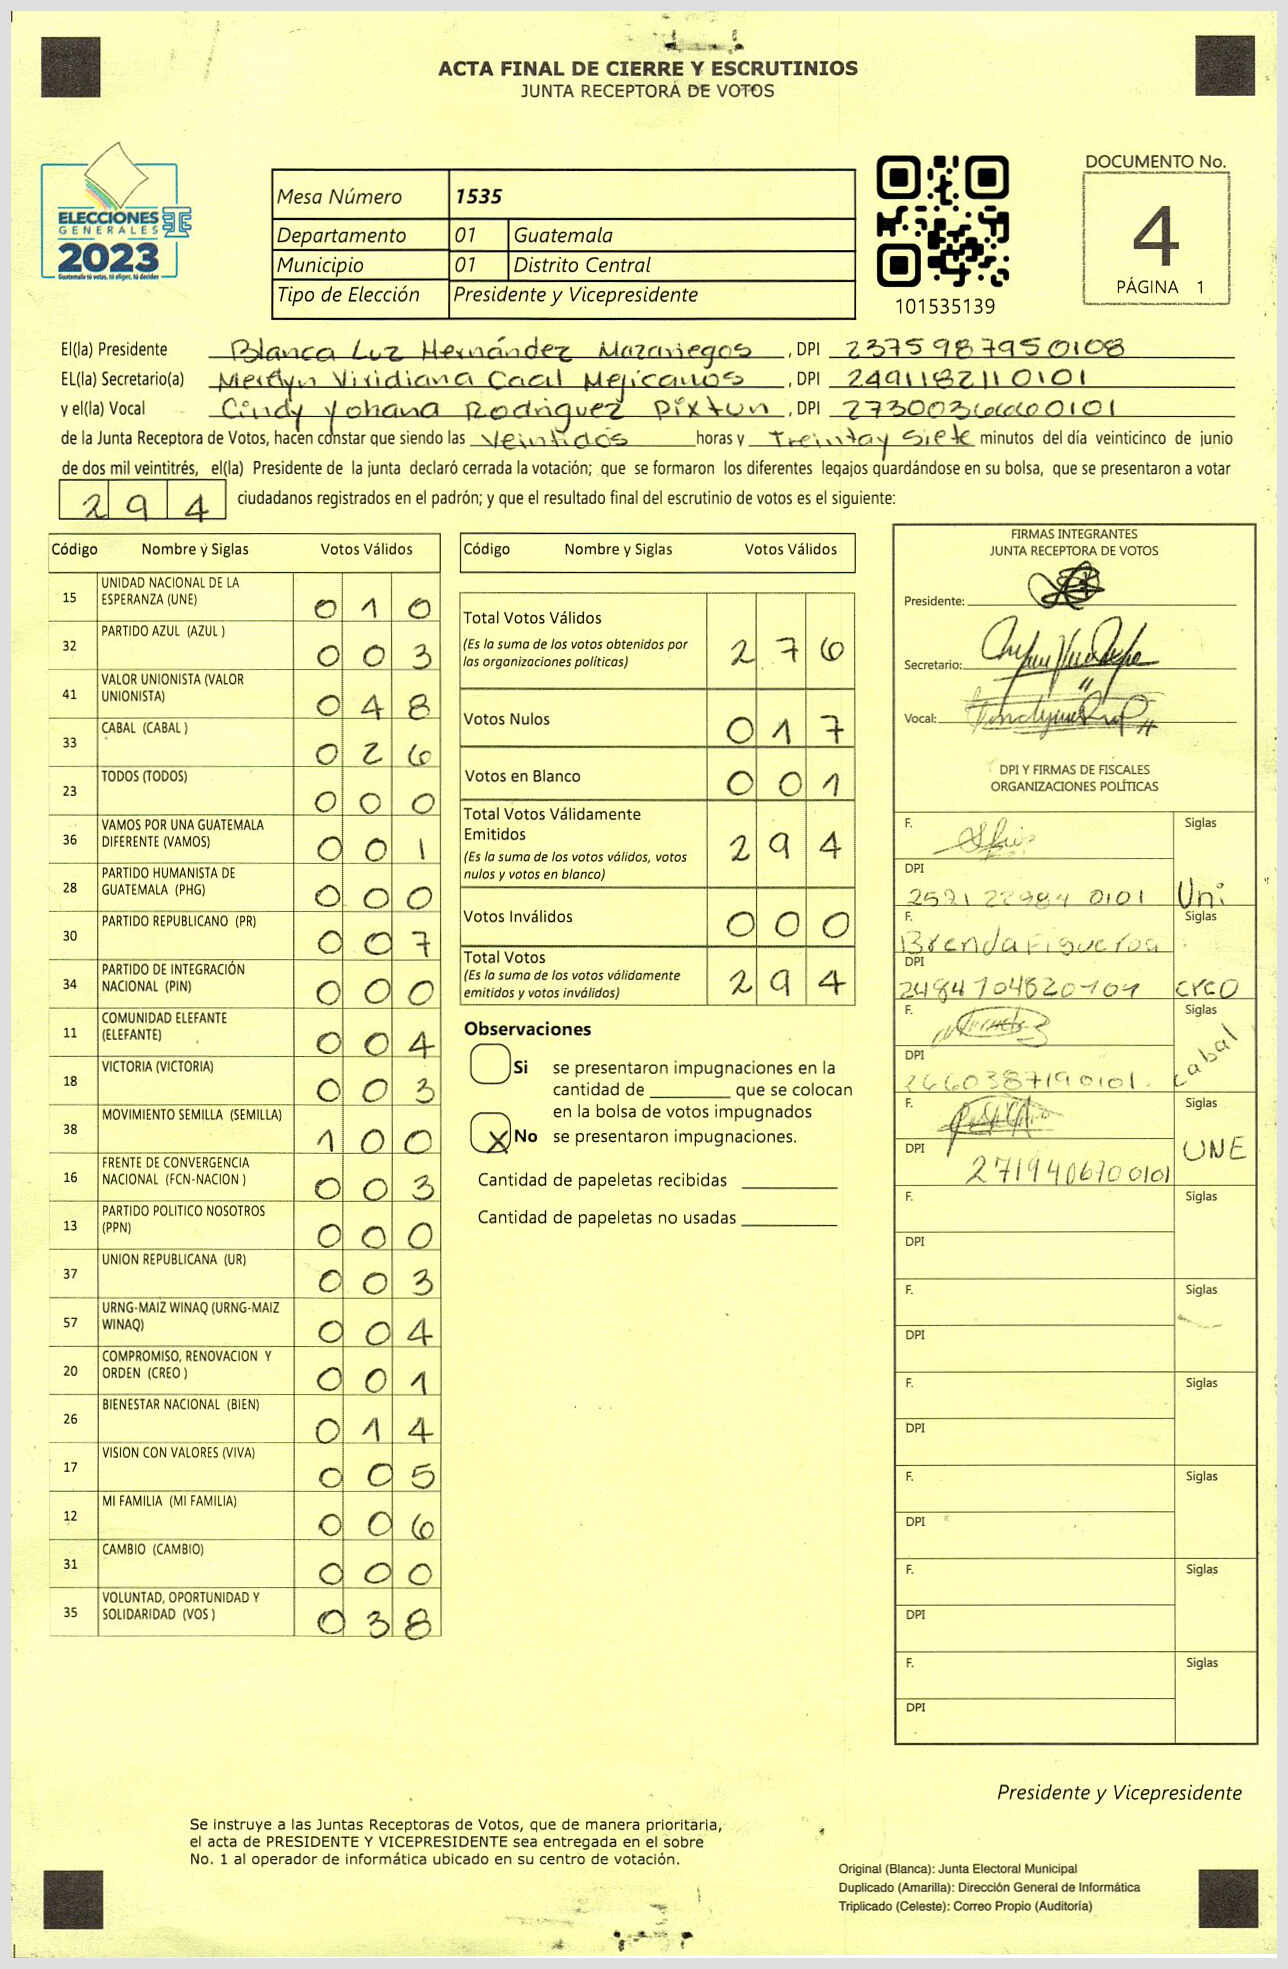 ACTA FINAL DE CIERRE Y ESCRUTINIOS
JUNTA RECEPTORA DE VOTOS
ELECCIONES
GENERALES
2023
Guatemala tú votas, tú eliges, tú decides
Mesa Número 1535
Departamento 01 Guatemala
Municipio 01 Distrito Central
Tipo de Elección Presidente y Vicepresidente
101535139
DOCUMENTO No.
4
PÁGINA 1
El(la) Presidente Blanca Luz Hernández Mazariegos, DPI 2375987950108
EL(la) Secretario(a) Merlyn Viridiana Caal Mejicanos, DPI 2491182110101
y el(la) Vocal Cindy Yohana Rodriguez Pixtun, DPI
de la Junta Receptora de Votos, hacen constar que siendo las Veintidos horas y Treinta y Siete minutos del día veinticinco de junio
de dos mil veintitrés, el(la) Presidente de la junta declaró cerrada la votación; que se formaron los diferentes legajos guardándose en su bolsa, que se presentaron a votar
294 ciudadanos registrados en el padrón; y que el resultado final del escrutinio de votos es el siguiente:
Código Nombre y Siglas Votos Válidos
15 UNIDAD NACIONAL DE LA
ESPERANZA (UNE) 010
32 PARTIDO AZUL (AZUL ) 003
41 VALOR UNIONISTA (VALOR
UNIONISTA) 048
33 CABAL (CABAL ) 026
23 TODOS (TODOS) 000
36 VAMOS POR UNA GUATEMALA
DIFERENTE (VAMOS) 001
28 PARTIDO HUMANISTA DE
GUATEMALA (PHG) 000
30 PARTIDO REPUBLICANO (PR) 007
34 PARTIDO DE INTEGRACIÓN
NACIONAL (PIN) 000
11 COMUNIDAD ELEFANTE
(ELEFANTE) 004
18 VICTORIA (VICTORIA) 003
38 MOVIMIENTO SEMILLA (SEMILLA) 100
16 FRENTE DE CONVERGENCIA
NACIONAL (FCN-NACION ) 003
13 PARTIDO POLITICO NOSOTROS
(PPN) 000
37 UNION REPUBLICANA (UR) 003
57 URNG-MAIZ WINAQ (URNG-MAIZ
WINAQ) 004
20 COMPROMISO, RENOVACION Y
ORDEN (CREO ) 001
26 BIENESTAR NACIONAL (BIEN) 014
17 VISION CON VALORES (VIVA) 005
12 MI FAMILIA (MI FAMILIA) 006
31 CAMBIO (CAMBIO) 000
35 VOLUNTAD, OPORTUNIDAD Y
SOLIDARIDAD (VOS ) 038
Código Nombre y Siglas Votos Válidos
Total Votos Válidos 276
(Es la suma de los votos obtenidos por
las organizaciones políticas)
Votos Nulos 017
Votos en Blanco 001
Total Votos Válidamente
Emitidos 294
(Es la suma de los votos válidos, votos
nulos y votos en blanco)
Votos Inválidos 000
Total Votos 294
(Es la suma de los votos válidamente
emitidos y votos inválidos)
Observaciones
Si se presentaron impugnaciones en la
cantidad de ________ que se colocan
en la bolsa de votos impugnados
X No se presentaron impugnaciones.
Cantidad de papeletas recibidas
Cantidad de papeletas no usadas
FIRMAS INTEGRANTES
JUNTA RECEPTORA DE VOTOS
Presidente:
Secretario:
Vocal:
DPI Y FIRMAS DE FISCALES
ORGANIZACIONES POLÍTICAS
F. Siglas
DPI
Uni
F. Brenda Figueroa Siglas
DPI
creo
F. Siglas
DPI
2660387190101. cabal
F. Siglas
DPI UNE
2719406700101
F. Siglas
DPI
F. Siglas
DPI
F. Siglas
DPI
F. Siglas
DPI
F. Siglas
DPI
F. Siglas
DPI
Presidente y Vicepresidente
Se instruye a las Juntas Receptoras de Votos, que de manera prioritaria,
el acta de PRESIDENTE Y VICEPRESIDENTE sea entregada en el sobre
No. 1 al operador de informática ubicado en su centro de votación.
Original (Blanca): Junta Electoral Municipal
Duplicado (Amarilla): Dirección General de Informática
Triplicado (Celeste): Correo Propio (Auditoría)